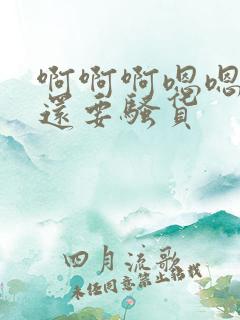 啊啊啊嗯嗯
還要騷貨
四月流歌
未经同意禁止转载